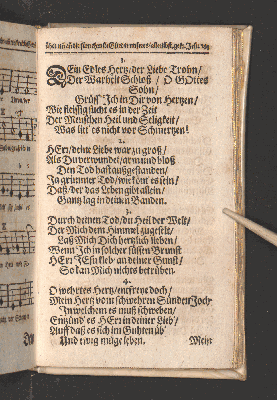 1.
DEin Edles Hertz/ der Liebe Trohn/
Der Warheit Schloß/ O GOttes
Sohn/
Grüss' Jch in Dir von Hertzen/
Wie fleissig sucht es in der Zeit
Der Menschen Heil und Seligkeit/
Was litt' es nicht vor Schmertzen!
2.
HErr/ deine Liebe war zu groß/
Als Du verwundet/ arm und bloß
Den Tod hast außgestanden/
Ja grimmer Tod/ wie kömt es fein/
Daß/ der das Leben gibt allein/
Gantz lag in deinen Banden.
3.
Durch deinen Tod/ du Heil der Welt/
Der Mich dem Himmel zugeselt/
Laß Mich Dich hertzlich lieben/
Wenn Jch in solcher süssen Brunst
HErr JEsu kleb' an deiner Gunst/
So kan Mich nichts betrüben.
4.
O wehrtes Hertz/ entfreye doch/
Mein Hertz vom schwehren Sünden Joch/
Jn welchem es muß schweben/
Entzünd' es HErr in deiner Lieb'/
Auff daß es sich im Guhten üb'
Und ewig müge leben.
Mein